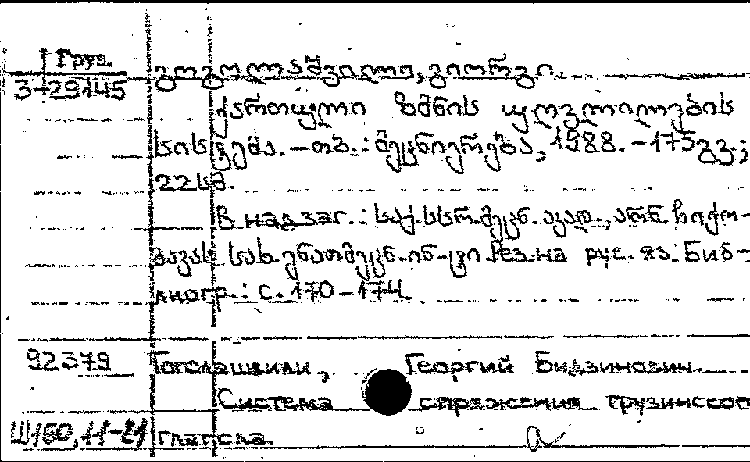 Груз.
3-29145
გოგოლაშვილი, გიორგი.
ქართული ზმნის უღვლილების
სისტემა. – თბ. : მეცნიერება, 1988. – 175 გვ.;
22 სმ.
В надзаг.: საქ. სსრ მეცნ. აკად., არნ. ჩიქო-
ბავას სახ. ენათმეცნ. ин-ტი. Рез. на рус. яз. Биб-
лиогр.: с. 170–174
92379 Гоголашвили, Георгий Бидзинович.
Система спряжения грузинского
Ш160,11-21 глагола.